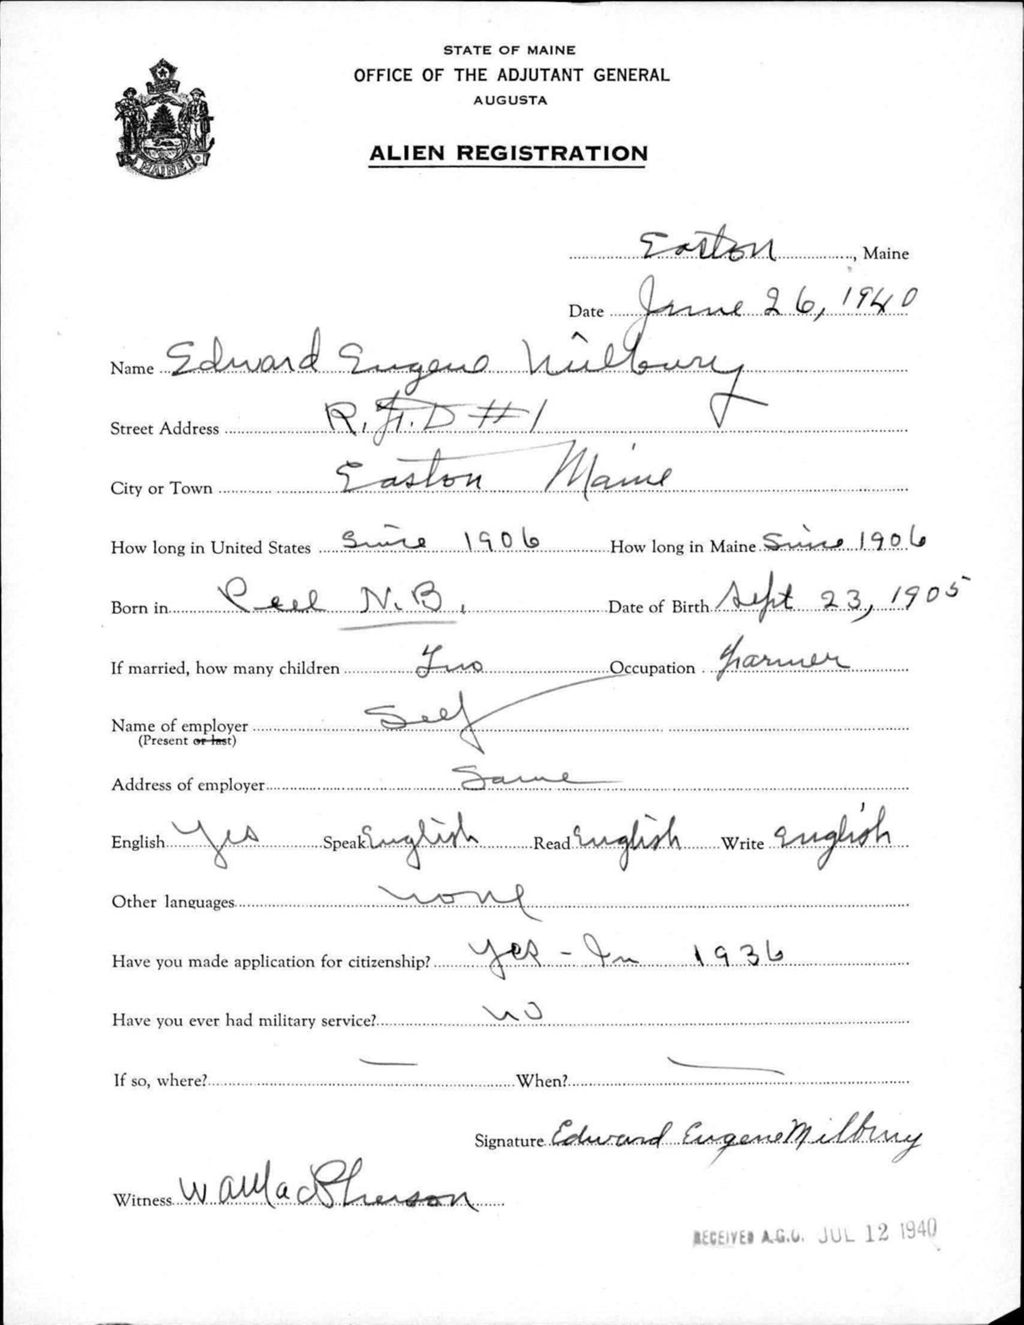 STATE OF MAINE
OFFICE OF THE ADJUTANT GENERAL
AUGUSTA
MAINE
ALIEN REGISTRATION
Easton, Maine
Date June 26, 1940
Name Edward Eugene Milbury
Street Address R.F.D #1
City or Town Easton Maine
How long in United States Since 1906 How long in Maine Since 1906
Born in Peel N.B. Date of Birth Sept 23, 1905
If married, how many children Two Occupation Farmer
Name of employer Self
(Present or last)
Address of employer Same
English Yes Speak English Read English Write English
Other languages none
Have you made application for citizenship? Yes - In 1936
Have you ever had military service? no
If so, where? — When? —
Signature Edward Eugene Milbury
Witness W A MacPherson
RECEIVED A.G.O. JUL 12 1940